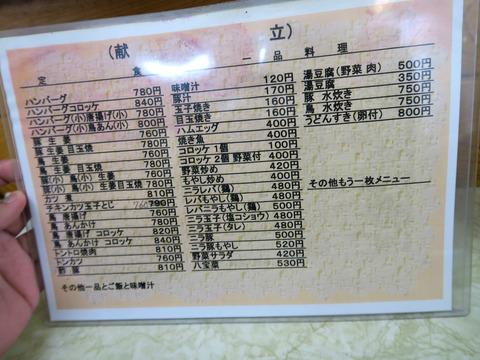 (献立)
定食
ハンバーグ 780円
ハンバーグコロッケ 840円
ハンバーグ(小)唐揚げ(小)
ハンバーグ(小)鳥あん(小) 800円
豚生姜 760円
鳥生姜
豚生姜目玉焼
鳥生姜目玉焼
カツ煮 810円
チキンカツ玉子とじ
鳥唐揚げ
鳥あんかけ
鳥唐揚げコロッケ 820円
鳥あんかけコロッケ 840円
トントロ焼肉 810円
トンカツ 760円
810円
その他一品とご飯と味噌汁
一品料理
味噌汁 120円
豚汁 170円
玉子焼き 160円
目玉焼き
ハムエッグ
焼き魚 400円
コロッケ1個 100円
コロッケ2個 野菜付 400円
野菜炒め 420円
もやし炒め 400円
ニラレバ(鶏) 480円
レバもやし(鶏) 480円
レバニラもやし(鶏) 480円
ニラ玉子(塩コショウ) 480円
ニラ玉子(タレ) 480円
ニラ豚 500円
ニラ豚もやし 520円
野菜サラダ 420円
八宝菜 530円
湯豆腐(野菜 肉) 500円
湯豆腐 350円
豚 水炊き 750円
鳥 水炊き 750円
うどんすき(卵付) 800円
その他もう一枚メニュー